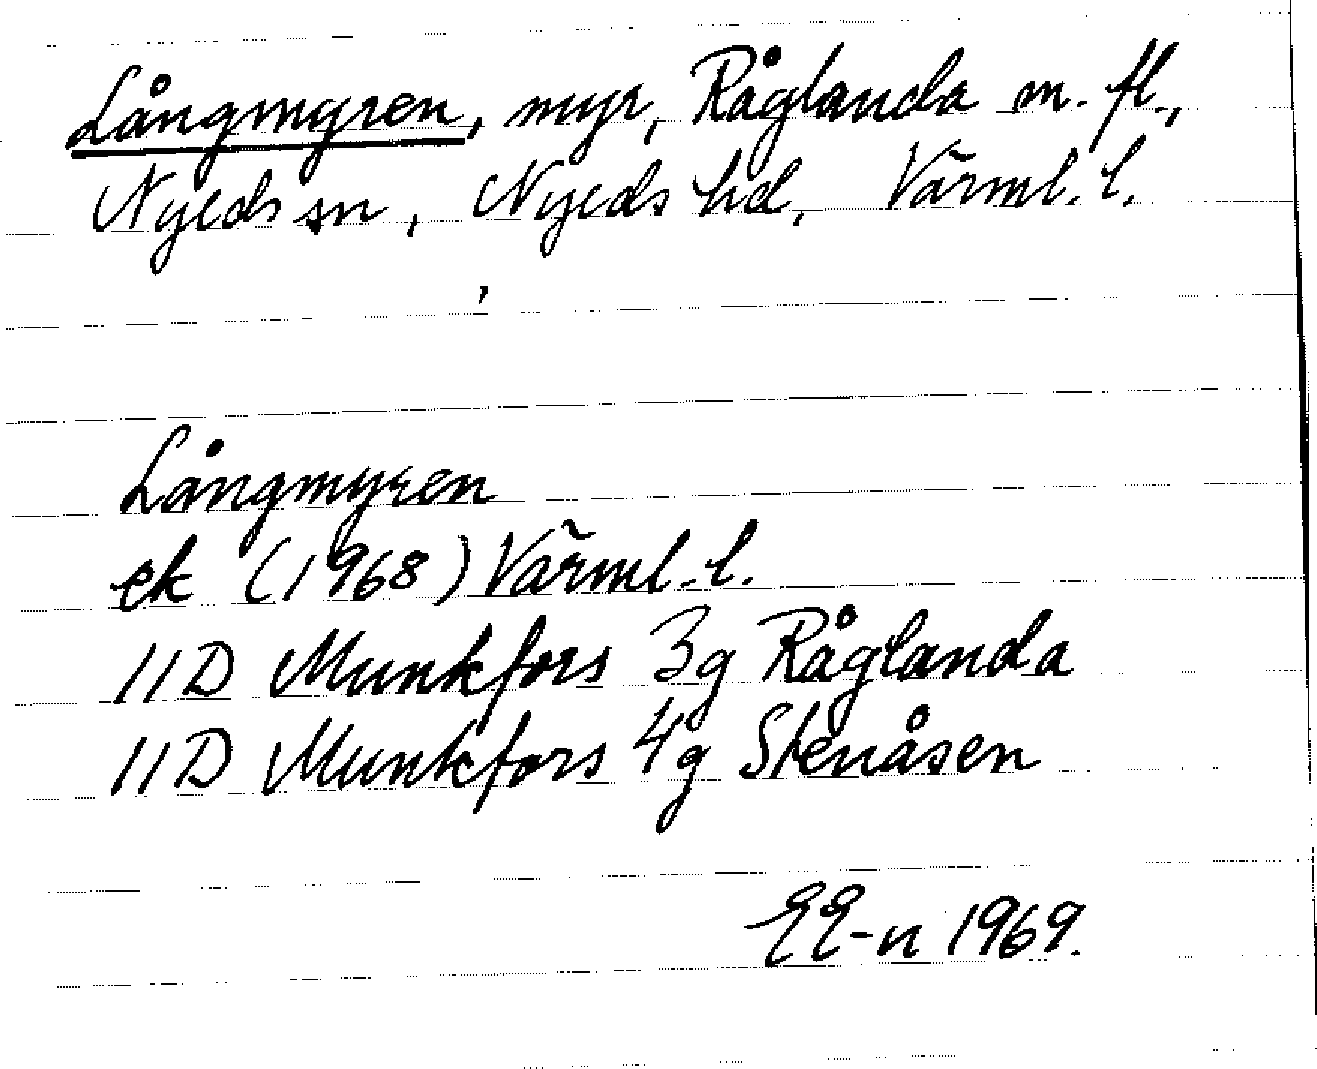 Långmyren, myr, Råglanda m. fl.,
Nyeds sn, Nyeds hd, Värml. l.
Långmyren
ek (1968) Värml. l.
11D Munkfors 3g Råglanda
11D Munkfors 4g Stenåsen
EE-n 1969.